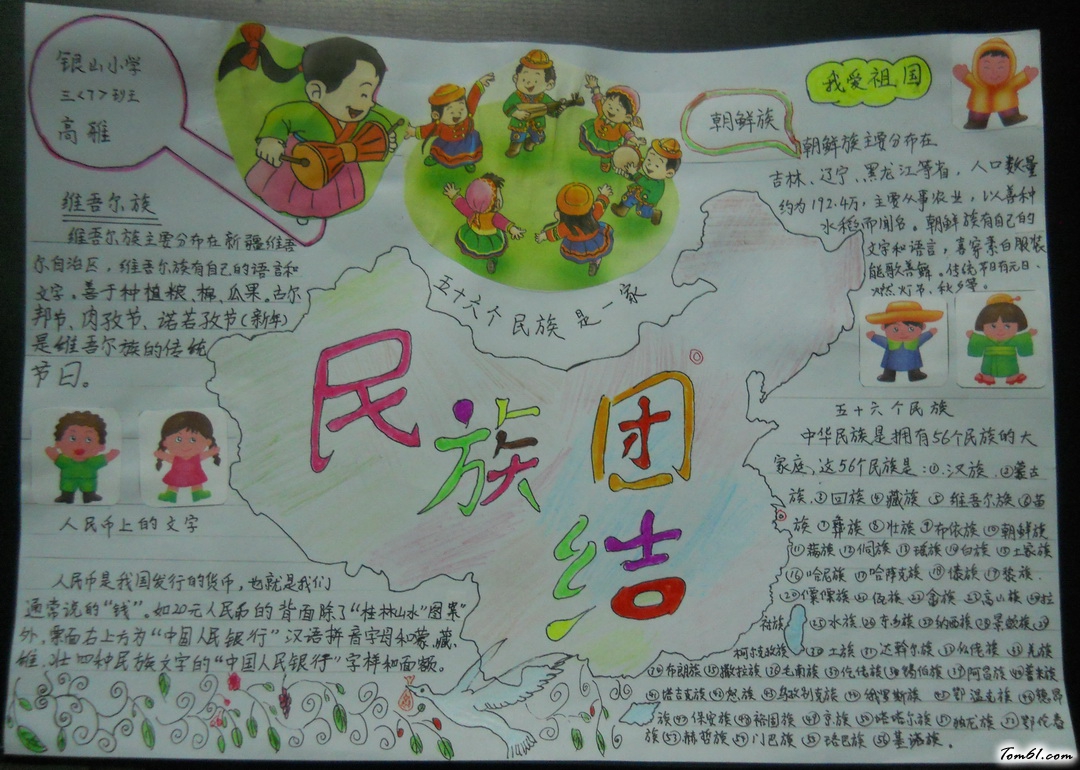 银山小学
三<7>班
高雅
维吾尔族
维吾尔族主要分布在新疆维吾
尔自治区，维吾尔族有自己的语言和
文字。善于种植粮、棉、瓜果。古尔
邦节、肉孜节、诺若孜节（新年）
是维吾尔族的传统
节日。
人民币上的文字
人民币是我国发行的货币，也就是我们
通常说的“钱”。如20元人民币的背面除了“桂林山水”图案
外，票面右上方为“中国人民银行”汉语拼音字母和蒙、藏、
维、壮四种民族文字的“中国人民银行”字样和面额。
五十六个民族是一家
民族
团结
我爱祖国
朝鲜族
朝鲜族主要分布在
吉林、辽宁、黑龙江等省，人口数量
约为192.4万，主要从事农业，以善种
水稻而闻名。朝鲜族有自己的
文字和语言，喜穿素白服装
能歌善舞。传统节日有元日、
燃灯节、秋夕等。
五十六个民族
中华民族是拥有56个民族的大
家庭，这56个民族是：①汉族、②蒙古
族、③回族④藏族⑤维吾尔族⑥苗
族⑦彝族⑧壮族⑨布依族⑩朝鲜族
⑪满族⑫侗族⑬瑶族⑭白族⑮土家族
⑯哈尼族⑰哈萨克族⑱傣族⑲黎族
⑳傈僳族㉑佤族㉒畲族㉓高山族㉔拉
祜族㉕水族㉖东乡族㉗纳西族㉘景颇族㉙
柯尔克孜族㉚土族㉛达斡尔族㉜仫佬族㉝羌族
布朗族㉟撒拉族㊱毛南族㊲仡佬族㊳锡伯族㊴阿昌族㊵普米族
塔吉克族㊷怒族㊸乌孜别克族㊹俄罗斯族㊺鄂温克族㊻德昂
族㊼保安族㊽裕固族㊾京族㊿塔塔尔族 独龙族 鄂伦春
族 赫哲族 门巴族 珞巴族 基诺族。
Tom61.com